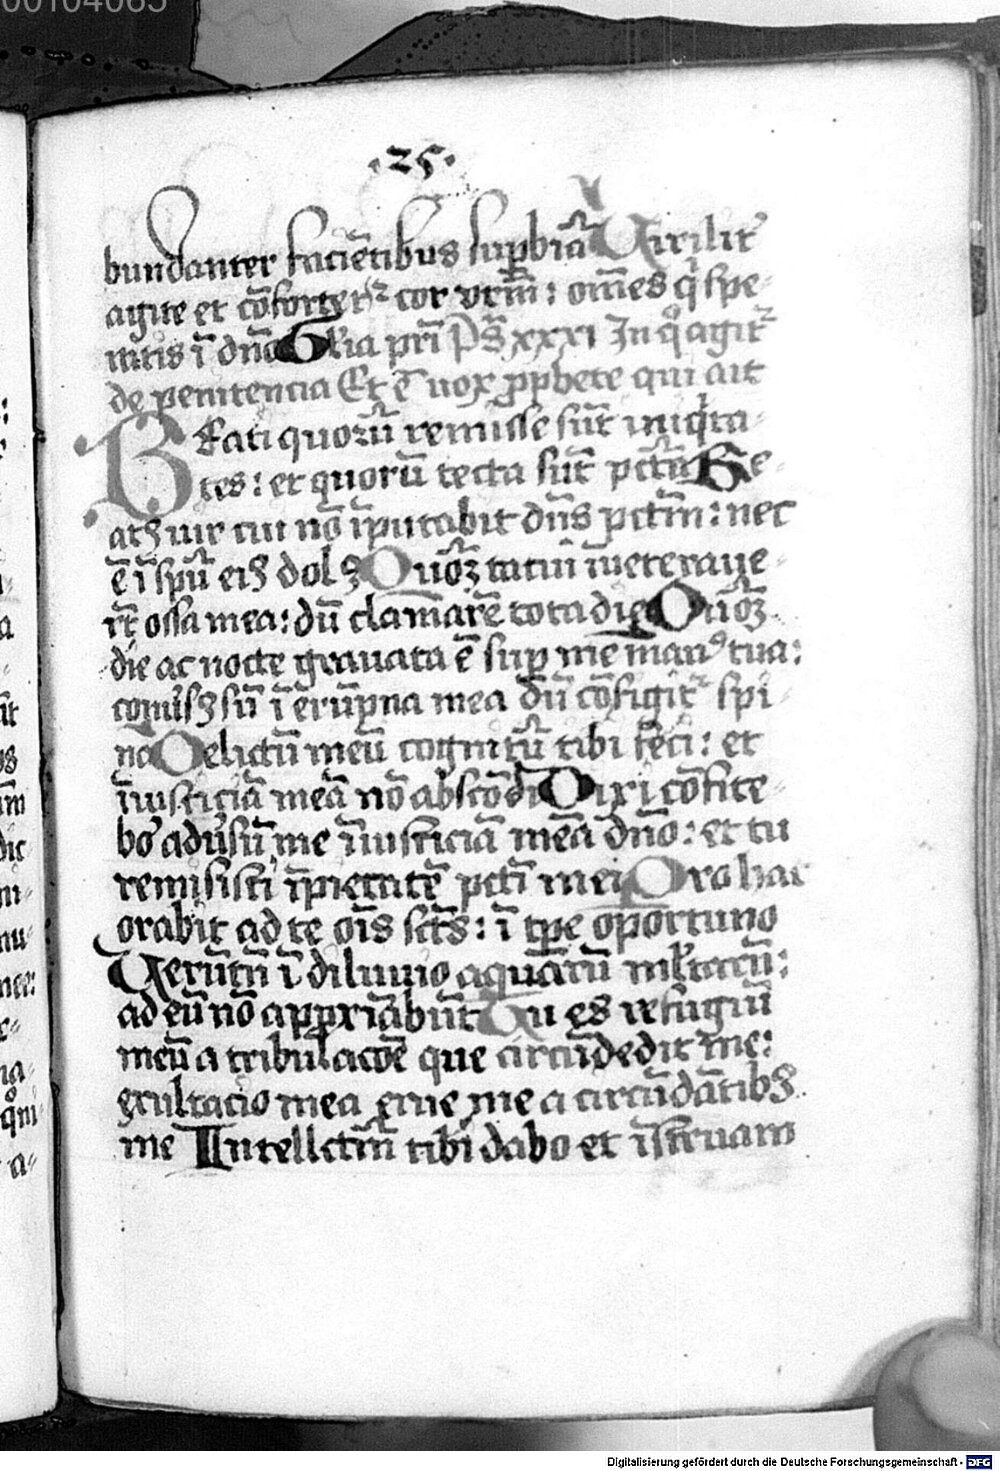 00104065
.25.
bundanter faciētibus supbiā Uirilit᷑
agite et cōfortet᷑ cor vr̄m : om̄es q̇ spe-
ratis ī dn̄o Gl̄ia pr̄i Ps̄ xxxi In qͦ agit᷑
de penitencia Et ē uox ꝓphete qui ait
Beati quoꝝ̄ remisse sūt iniq̇ta-
tes : et quorū tecta sūt pctā Be-
atꝰ uir cui nō īputabit dn̄s pctm̄ : nec
ē ī spū eiꝰ dolꝰ Quōꝫ tacui īueteraue-
rt̄ ossa mea : dū clamarē tota die Quōꝫ
die ac nocte grauata ē sup me manꝰ tua :
cōuisꝰ sū ī erūpna mea dū cōfigit᷑ spi-
na Delictū meū cognitū tibi feci : et
īiusticiā meā nō abscōdi Dixi cōfite-
bo᷑ adūsū me īiusticiā meā dn̄o : et tu
remisisti īpietatē pcti mei Pro hac
orabit ad te oīs sct̄s : ī tp̄e oportuno
Uerūtn̄ ī diluuio aquarū ml̄tarū :
ad eū nō appxiābūt Tu es refugiū
meū a tribulacōe que circūdedit me :
exultacio mea erue me a circūdātibꝰ
me Intellctm̄ tibi dabo et īstruam
Digitalisierung gefördert durch die Deutsche Forschungsgemeinschaft - DFG